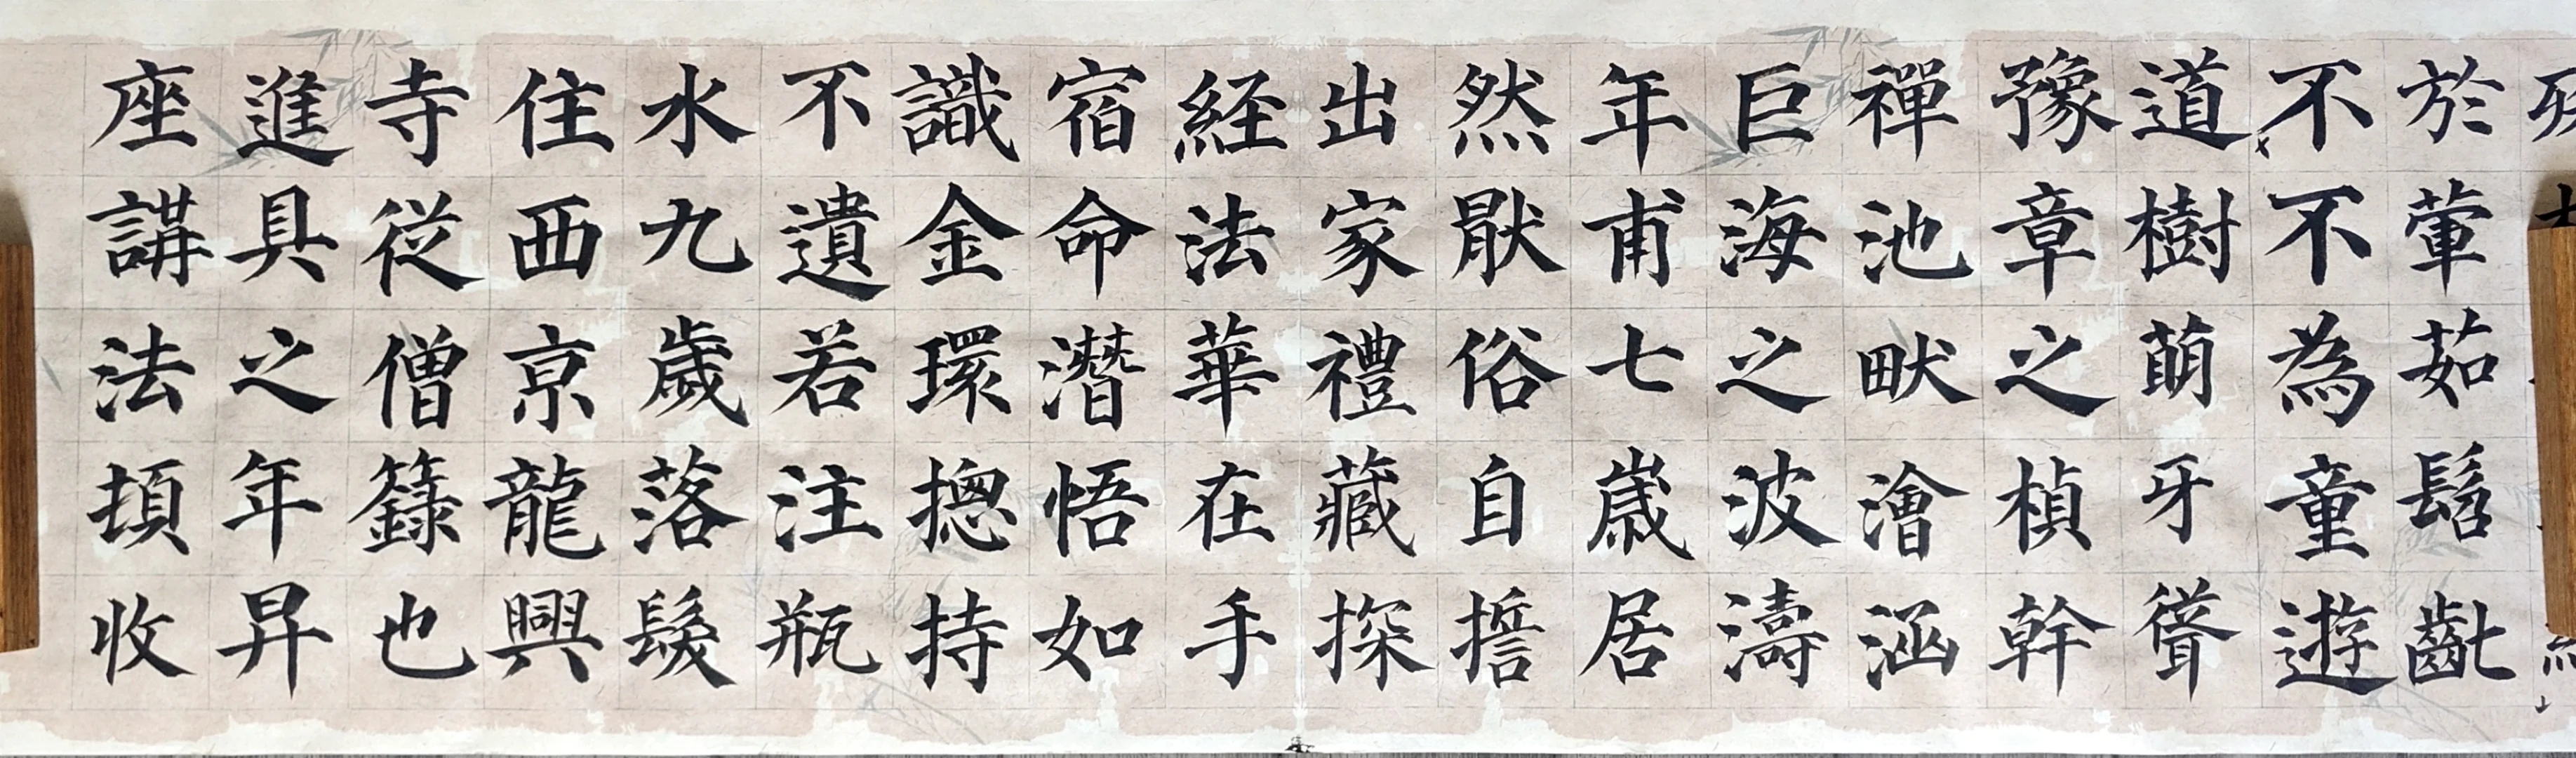 於葷茹髫齔
不不為童遊
道樹萌牙聳
豫章之楨幹
禪池畎澮涵
巨海之波濤
年甫七歲居
然猒俗自誓
出家禮藏探
経法華在手
宿命潛悟如
識金環摠持
不遺若注瓶
水九歲落髮
住西京龍興
寺從僧籙也
進具之年昇
座講法頓收